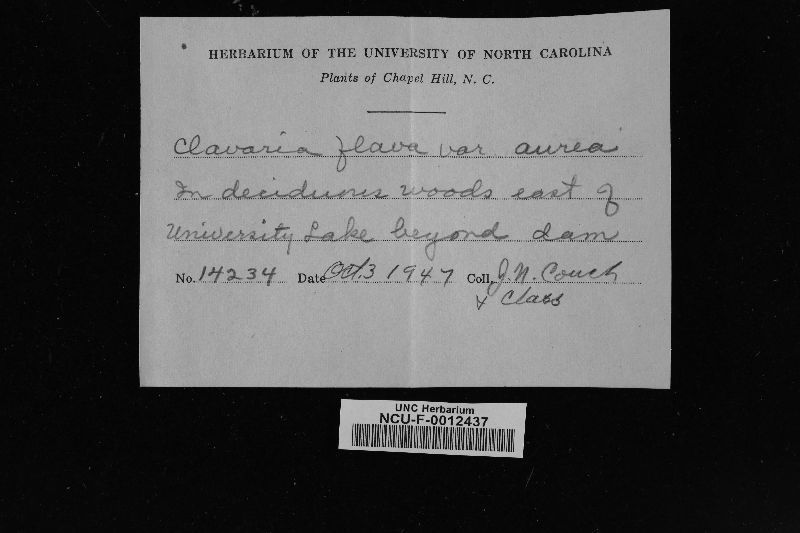 HERBARIUM OF THE UNIVERSITY OF NORTH CAROLINA
Plants of Chapel Hill, N. C.
Clavaria flava var aurea
In deciduous woods east of
University Lake beyond dam
No. 14234 Date Oct. 3 1947 Coll. J. N. Couch
& Class
UNC Herbarium
NCU-F-0012437